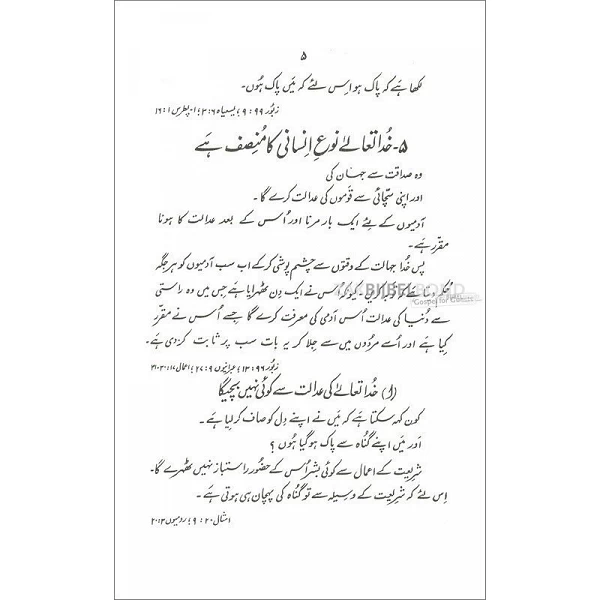 ۵
لکھا ہے کہ پاک ہو اِس لئے کہ مَیں پاک ہُوں۔
زبُور ۹۹ : ۹؛ یسعیاہ ۶:۳؛ ۱-پطرس ۱:۱۶
۵- خُدا تعالےٰ نوعِ اِنسانی کا مُنصِف ہے
وہ صداقت سے جہان کی
اور اپنی سچّائی سے قوموں کی عدالت کرے گا۔
آدمیوں کے لِئے ایک بار مرنا اور اُس کے بعد عدالت کا ہونا
مقرّر ہے۔
پس خُدا جہالت کے وقتوں سے چشم پوشی کر کے اب سب آدمیوں کو ہر جگہ
BIJBEL
Gospel for Guests
کیونکہ اُس نے ایک دِن ٹھہرایا ہے جِس میں وہ راستی
سے دُنیا کی عدالت اُس آدمی کی معرفت کرے گا جِسے اُس نے مقرّر
کِیا ہے اور اُسے مُردوں میں سے جِلا کر یہ بات سب پر ثابت کر دی ہے۔
زبُور ۹۶ : ۱۳؛ عبرانیوں ۹ : ۲۷؛ اعمال ۱۷ : ۳۰-۳۱
(ا) خُدا تعالےٰ کی عدالت سے کوئی نہیں بچیگا
کون کہہ سکتا ہے کہ مَیں نے اپنے دِل کو صاف کر لِیا ہے۔
اور مَیں اپنے گُناہ سے پاک ہو گیا ہُوں ؟
شرِیعت کے اعمال سے کوئی بشر اُس کے حضُور راستباز نہیں ٹھہرے گا۔
اِس لِئے کہ شرِیعت کے وسِیلہ سے تو گُناہ کی پہچان ہی ہوتی ہے۔
امثال ۲۰ : ۹؛ رومیوں ۳:۲۰